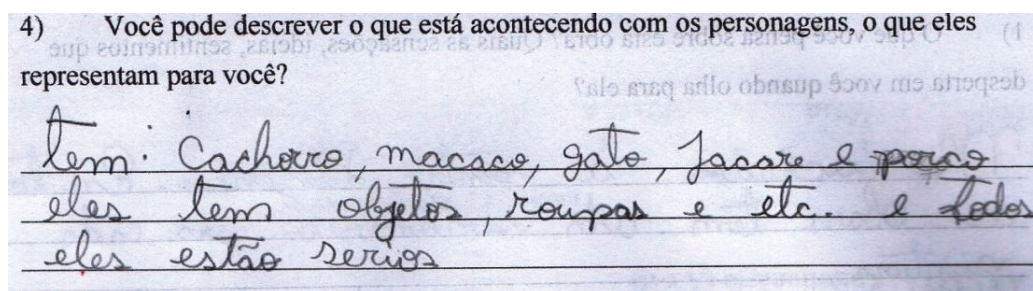 4) Você pode descrever o que está acontecendo com os personagens, o que eles
representam para você?
tem: Cachorro, macaco, gato, Jacare e porco
eles tem objetos, roupas e etc. e todos
eles estão serios